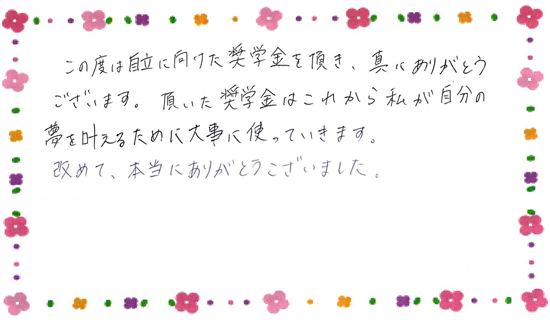 この度は自立に向けた奨学金を頂き、真にありがとう
ございます。頂いた奨学金はこれから私が自分の
夢を叶えるために大事に使っていきます。
改めて、本当にありがとうございました。